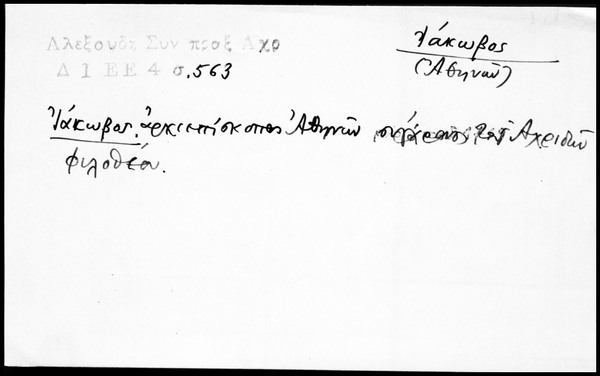 Αλεξουδη Συν πραξ Αχρ
Δ Ι Ε Ε 4 σ.563
Ἰάκωβος
(Ἀθηνῶν)
Ἰάκωβος, ἀρχιεπίσκοπος Ἀθηνῶν τοῦ Ἀχριδῶν
Φιλοθέου.